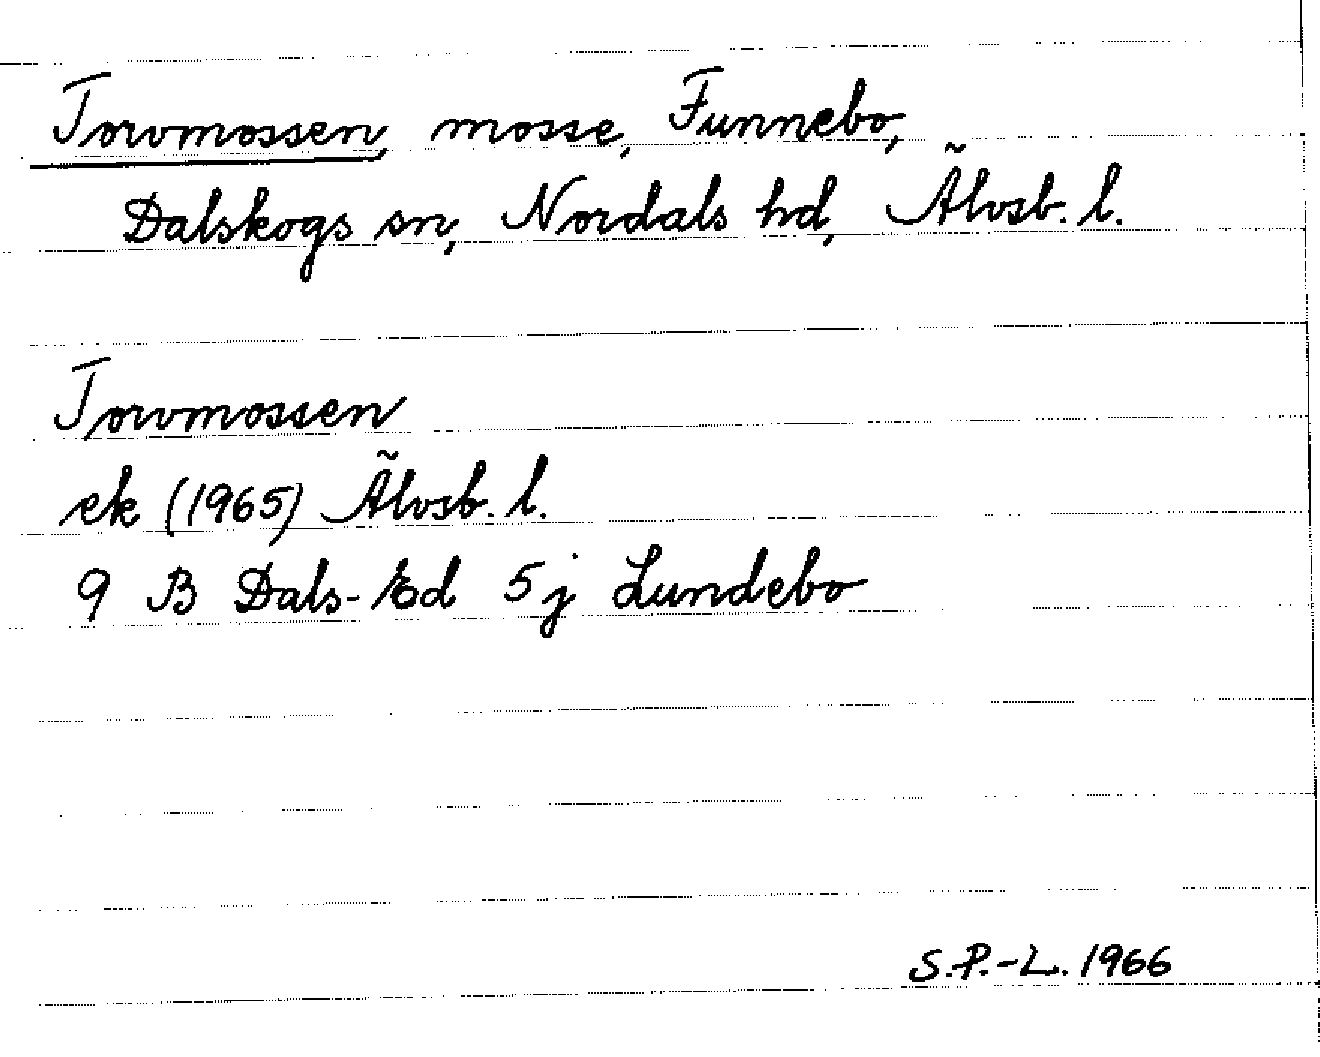 Torvmossen, mosse, Funnebo,
Dalskogs sn, Nordals hd, Älvsb. l.
Torvmossen
ek (1965) Älvsb. l.
9 B Dals-Ed 5 j Lundebo
S.P.-L. 1966